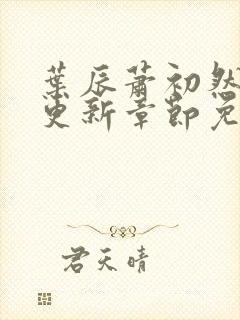 葉辰蕭初然
更新章節免
君天晴